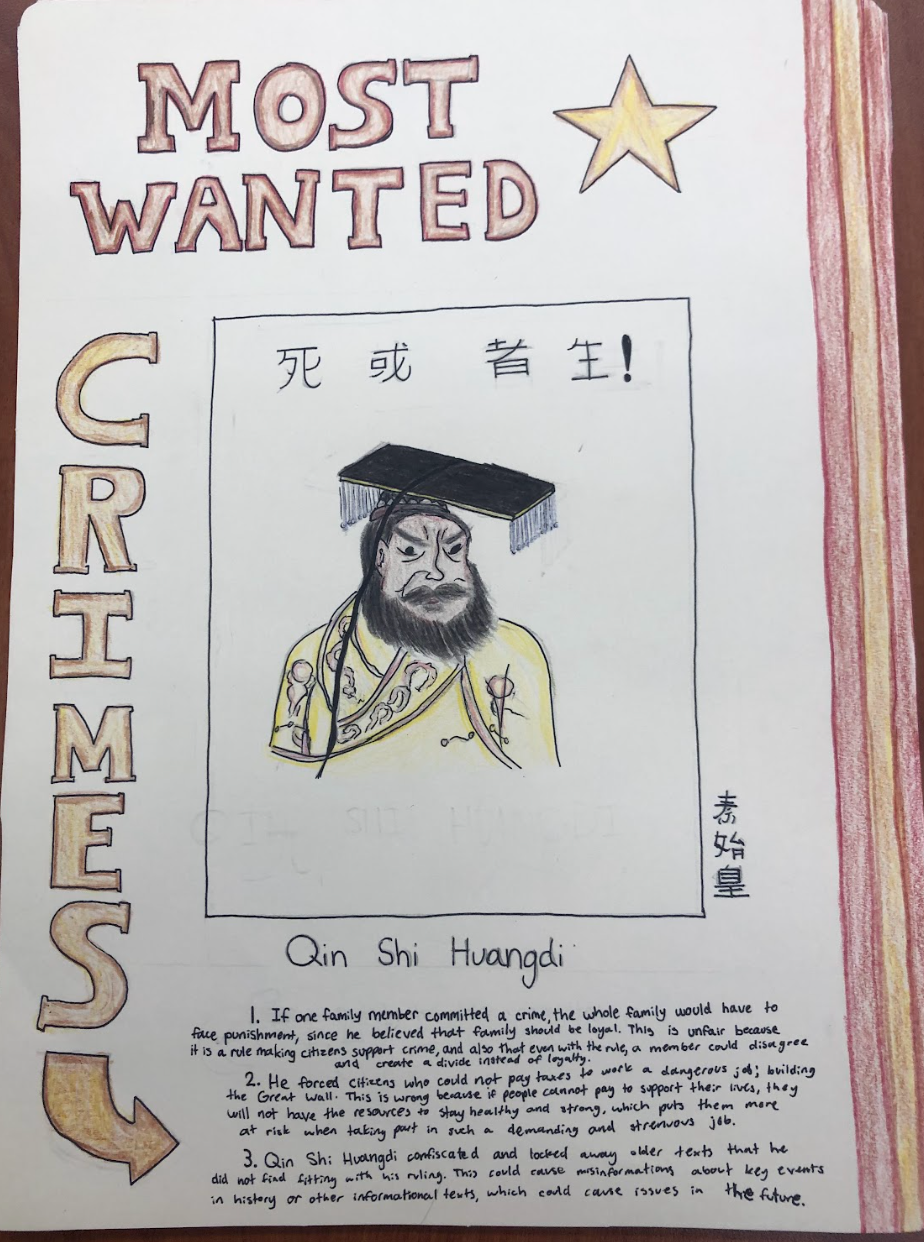 MOST
WANTED
CRIMES
死 或 者 生!
秦始皇
Qin Shi Huangdi
1. If one family member committed a crime, the whole family would have to
face punishment, since he believed that family should be loyal. This is unfair because
it is a rule making citizens support crime, and also that even with the rule, a member could disagree
and create a divide instead of loyalty.
2. He forced citizens who could not pay taxes to work a dangerous job; building
the Great Wall. This is wrong because if people cannot pay to support their lives, they
will not have the resources to stay healthy and strong, which puts them more
at risk when taking part in such a demanding and strenuous job.
3. Qin Shi Huangdi confiscated and locked away older texts that he
did not find fitting with his ruling. This could cause misinformations about key events
in history or other informational texts, which could cause issues in the future.